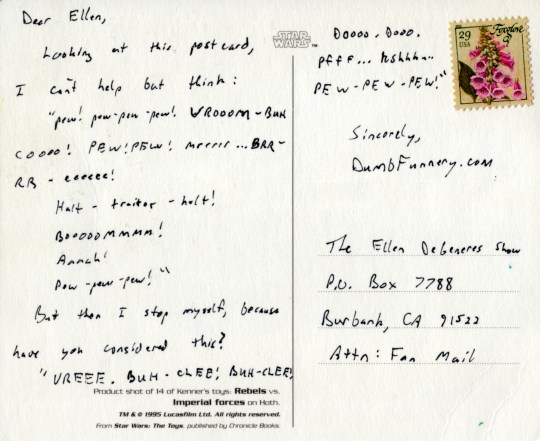 Dear Ellen,
Looking at this postcard,
I can't help but think:
"pew! pew-pew-pew! VROOOM-BUH
COOOO! PEW!PEW! mrrrrr...BRR-
RB - eeeeee!
Halt - traitor - halt!
BOOOOOMMMM!
Annah!
Pew -pew-pew!"
But then I stop myself, because
have you considered this?
"VREEE. BUH - CLEE! BUH-CLEE!
Product shot of 14 of Kenner's toys: Rebels vs.
Imperial forces on Hoth.
TM & © 1995 Lucasfilm Ltd. All rights reserved.
From Star Wars: The Toys, published by Chronicle Books.
STAR
WARS™
DOOOO. DOOO.
Pfff... kshhhh..
PEW-PEW-PEW!"
Sincerely,
DumbFunnery.com
29
USA
Foxglove
The Ellen DeGeneres Show
P.O. Box 7788
Burbank, CA 91522
Attn: Fan Mail